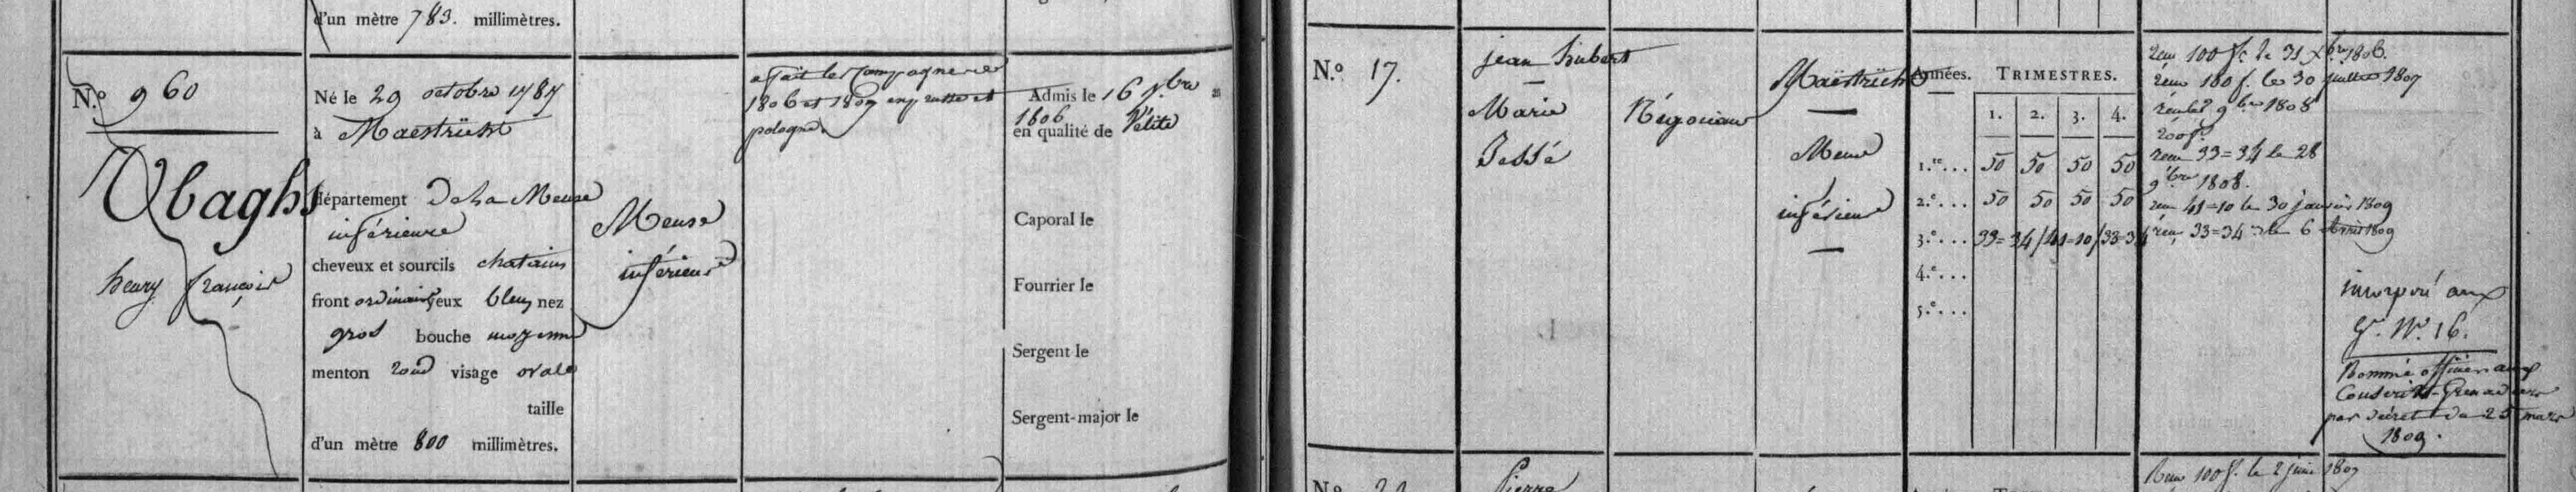 d'un mètre 783. millimètres.
N.º 960
Ubaghs
henry françois
Né le 29 octobre 1787
à Maëstricht
département De La Meuse
inférieure
cheveux et sourcils chatains
front ordinaire yeux bleus nez
gros bouche moyenne
menton rond visage ovale
taille
d'un mètre 800 millimètres.
Meuse
inférieure
a fait les Campagnes de
1806 et 1807 en prusse et
pologne
Admis le 16 7.bre
1806
en qualité de Vélite
Caporal le
Fourrier le
Sergent le
Sergent-major le
N.º 17.
jean hubert
—
Marie
Bessé
Négociant
Maëstricht
—
Meuse
inférieure
—
Années. TRIMESTRES.
1. 2. 3. 4.
1.re... 50 50 50 50
2.e... 50 50 50 50
3.e... 33=34 / 41=10 / 33=34
4.e...
5.e...
reçu 100 f. le 31 Xbre 1806.
reçu 100 f. le 30 juillet 1807
9bre 1808
200 f.
reçu 33=34 le 28
9bre 1808.
reçu 41=10 le 30 janvier 1809
reçu 33=34 le 6 Avril 1809
incorporé aux
G.rs N.º 16.
Nommé officier aux
Conscrits-Grenadiers
par décret du 25 mars
1809.
N.º
Pierre
Reçu 100 f. le 2 juin 1807